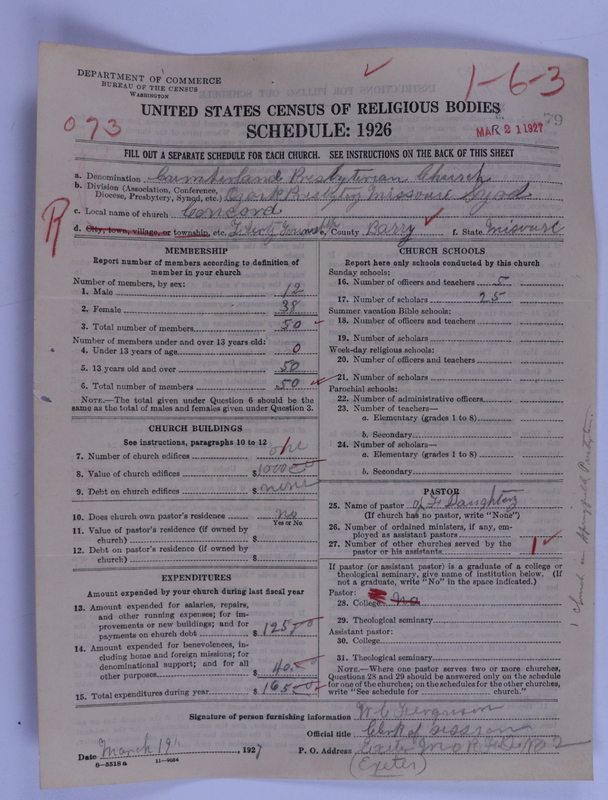 DEPARTMENT OF COMMERCE
BUREAU OF THE CENSUS
WASHINGTON
1-6-3
UNITED STATES CENSUS OF RELIGIOUS BODIES
SCHEDULE: 1926
073
MAR 21 1927
79
FILL OUT A SEPARATE SCHEDULE FOR EACH CHURCH. SEE INSTRUCTIONS ON THE BACK OF THIS SHEET
a. Denomination Cumberland Presbyterian Church
b. Division (Association, Conference, Diocese, Presbytery, Synod, etc.) Ozark Presbytery Missouri Synod
c. Local name of church Concord
R
d. City, town, village, or township, etc. Liberty Township, County Barry f. State Missouri
MEMBERSHIP
Report number of members according to definition of
member in your church
Number of members, by sex:
1. Male 12
2. Female 38
3. Total number of members 50
Number of members under and over 13 years old:
4. Under 13 years of age 0
5. 13 years old and over 50
6. Total number of members 50
NOTE.—The total given under Question 6 should be
the same as the total of males and females given under Question 3.
CHURCH BUILDINGS
See instructions, paragraphs 10 to 12
7. Number of church edifices one
8. Value of church edifices $1000
9. Debt on church edifices $none
10. Does church own pastor's residence? no
Yes or No
11. Value of pastor's residence (if owned by
church) $
12. Debt on pastor's residence (if owned by
church) $
EXPENDITURES
Amount expended by your church during last fiscal year
13. Amount expended for salaries, repairs,
and other running expenses; for im-
provements or new buildings; and for
payments on church debt $125
14. Amount expended for benevolences, in-
cluding home and foreign missions; for
denominational support; and for all
other purposes $40
15. Total expenditures during year $165
CHURCH SCHOOLS
Report here only schools conducted by this church
Sunday schools:
16. Number of officers and teachers 5
17. Number of scholars 25
Summer vacation Bible schools:
18. Number of officers and teachers
19. Number of scholars
Week-day religious schools:
20. Number of officers and teachers
21. Number of scholars
Parochial schools:
22. Number of administrative officers
23. Number of teachers—
a. Elementary (grades 1 to 8)
b. Secondary
24. Number of scholars—
a. Elementary (grades 1 to 8)
b. Secondary
PASTOR
25. Name of pastor
(If church has no pastor, write "None")
26. Number of ordained ministers, if any, em-
ployed as assistant pastors
27. Number of other churches served by the
pastor or his assistants 1
If pastor (or assistant pastor) is a graduate of a college or
theological seminary, give name of institution below. (If
not a graduate, write "No" in the space indicated.)
Pastor:
28. College no
29. Theological seminary
Assistant pastor:
30. College
31. Theological seminary
NOTE.—Where one pastor serves two or more churches,
Questions 28 and 29 should be answered only on the schedule
for one of the churches; on the schedules for the other churches,
write "See schedule for church."
1 church in Springfield Presbytery
Signature of person furnishing information W C Ferguson
Official title Clerk of session
Date March 19, 1927 P. O. Address Exeter Mo R F D No 2
(Exeter)
8—5518a 11—9064